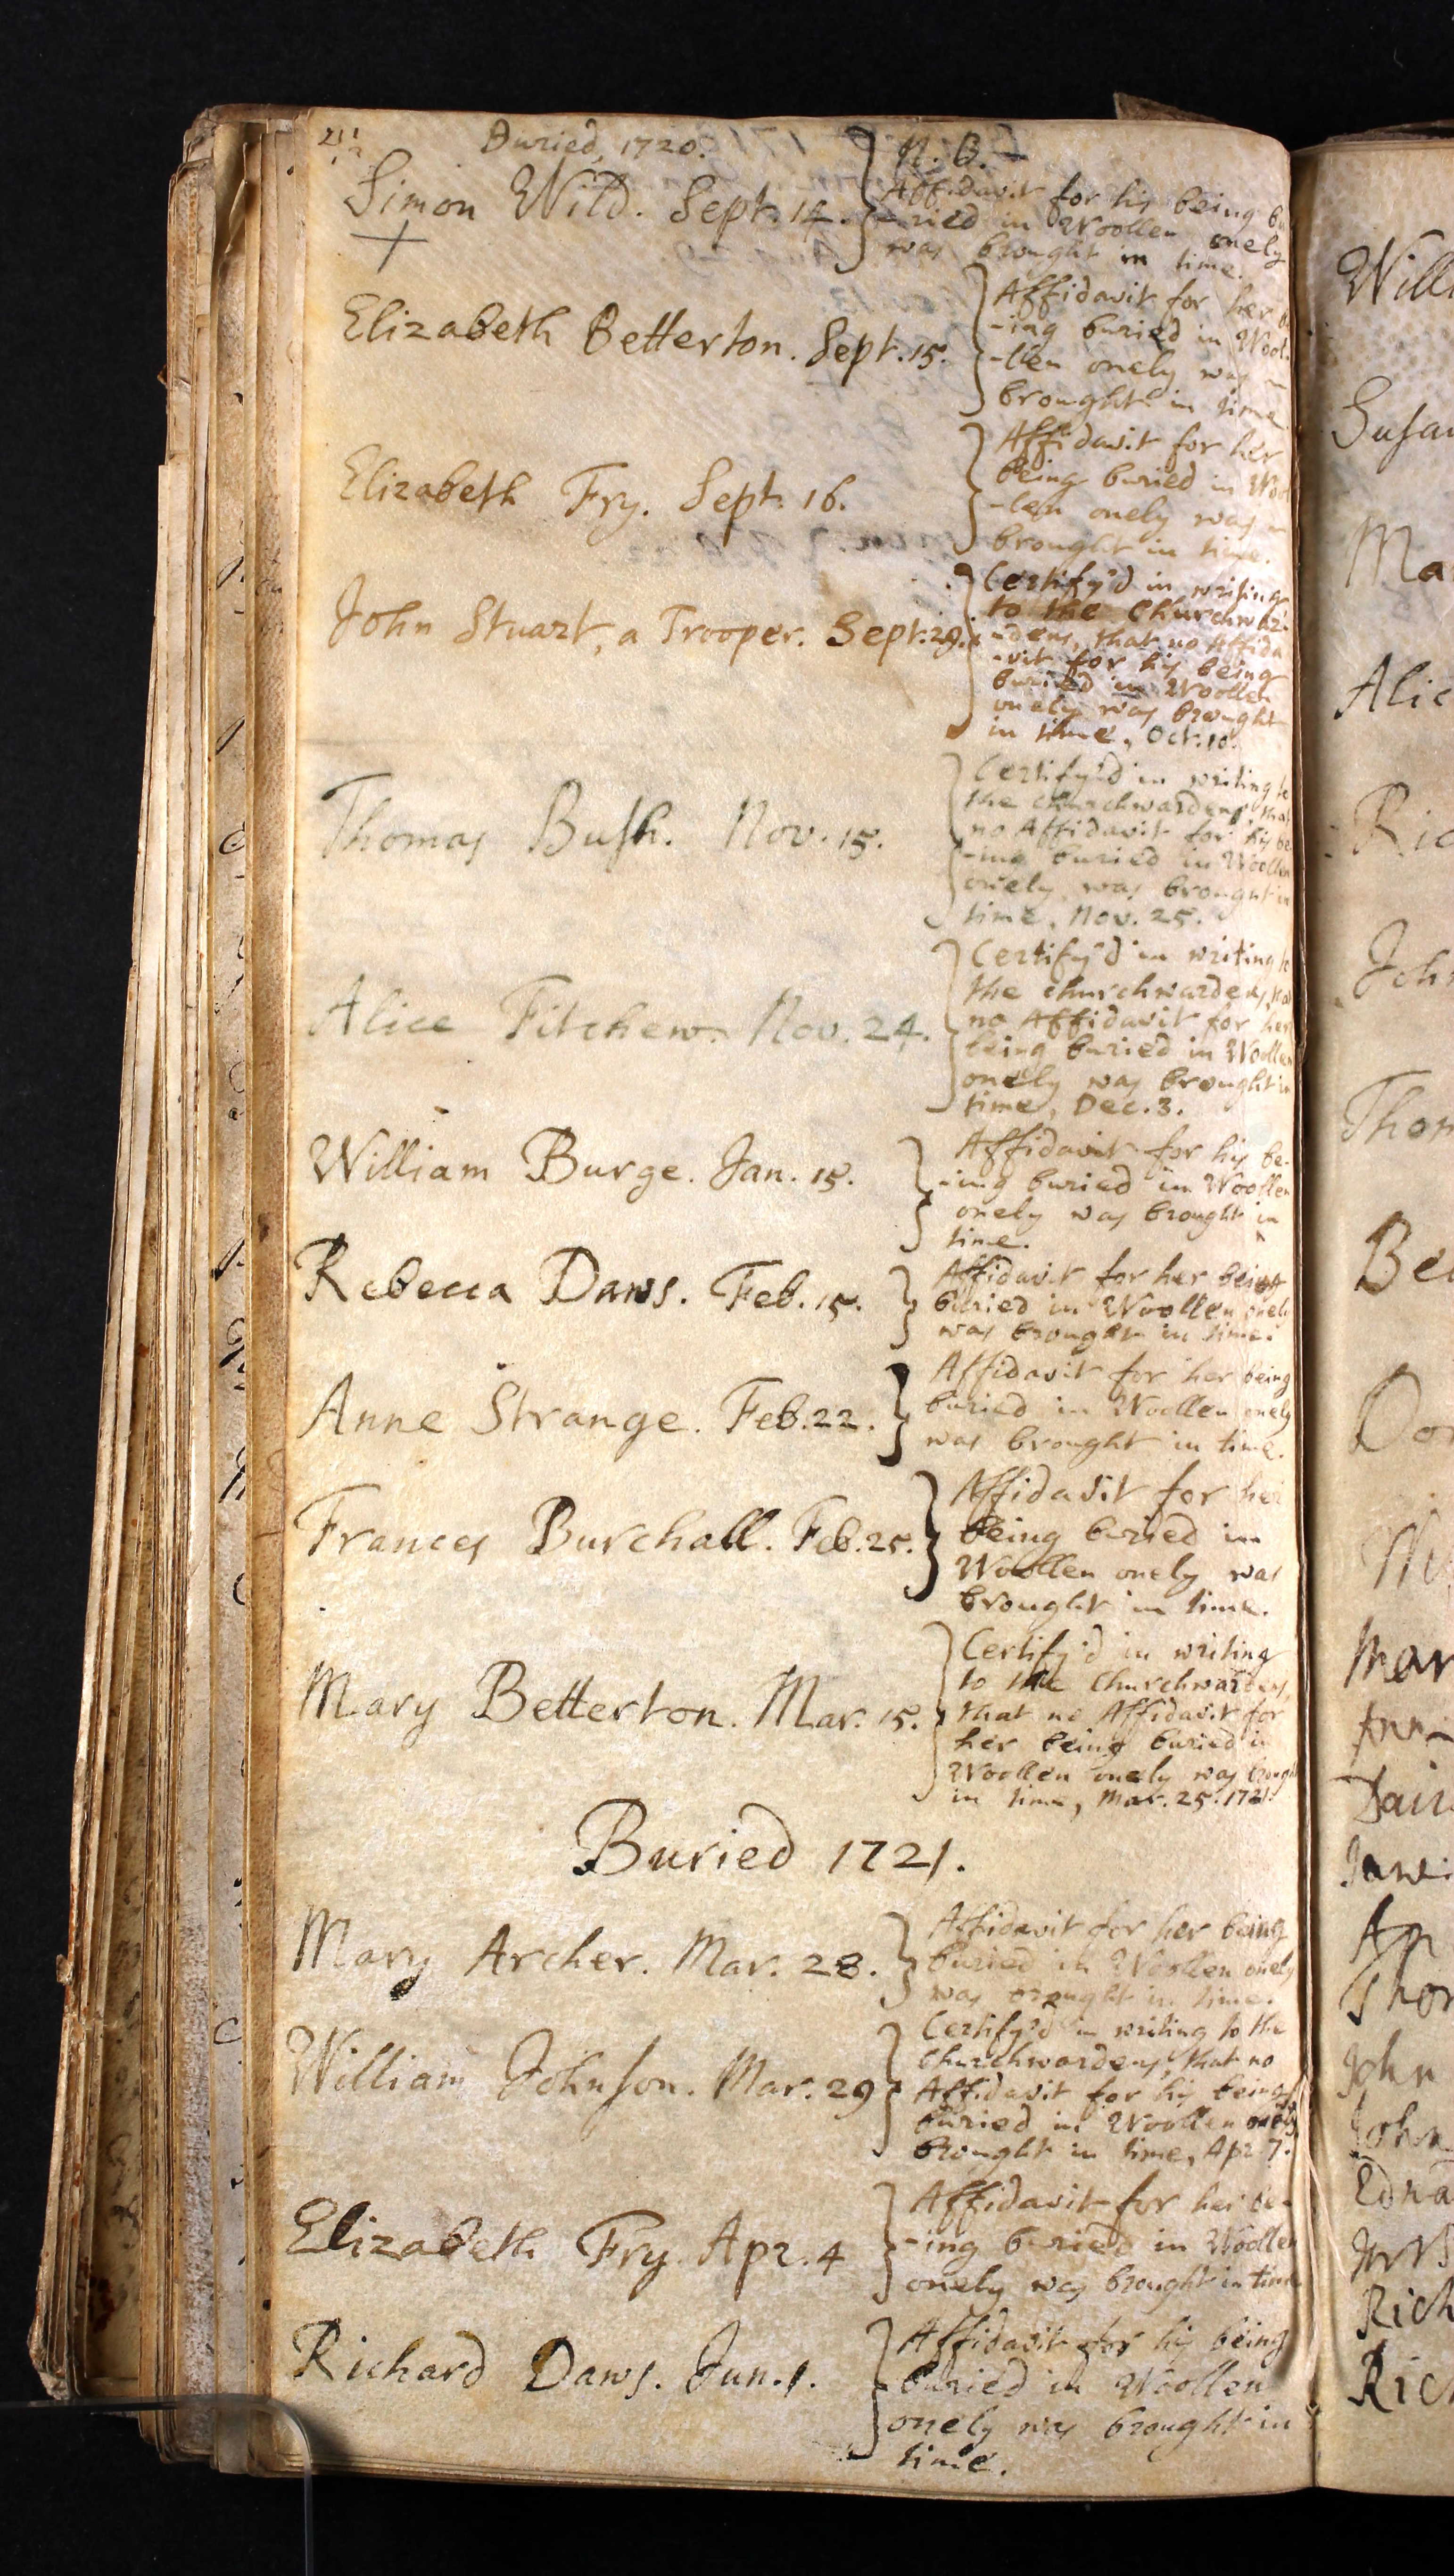 Buried, 1720.
N. B. -
Simon Wild. Sept. 14.
Affidavit for his being bu
-ried in Woollen onely
was brought in time.
Elizabeth Betterton. Sept. 15.
Affidavit for her be
-ing buried in Wool-
-llen onely was
brought in time
Elizabeth Fry. Sept. 16.
Affidavit for her
being buried in Wool
-len onely was
brought in time.
John Stuart, a Trooper. Sept. 29.
Certify'd in writing
to the Churchwar-
-dens, that no Affida
-vit for his being
buried in Woollen
onely was brought
in time, Oct. 10.
Thomas Bush. Nov. 15.
Certify'd in writing to
the Churchwardens, that
no Affidavit for his be
-ing buried in Woollen
onely was brought in
time, Nov. 25.
Alice Fitchew. Nov. 24.
Certify'd in writing to
the churchwardens, that
no Affidavit for her
being buried in Woollen
onely was brought in
time, Dec. 3.
William Burge. Jan. 15.
Affidavit for his be-
-ing buried in Woollen
onely was brought in
time.
Rebecca Daws. Feb. 15.
Affidavit for her being
buried in Woollen onely
was brought in time.
Anne Strange. Feb. 22.
Affidavit for her being
buried in Woollen onely
was brought in time.
Frances Burchall. Feb. 25.
Affidavit for her
being buried in
Woollen onely was
brought in time.
Mary Betterton. Mar. 15.
Certify'd in writing
to the Churchwardens,
that no Affidavit for
her being buried in
Woollen onely was brought
in time, Mar. 25. 1721.
Buried 1721.
Mary Archer. Mar. 28.
Affidavit for her being
buried in Woollen onely
was brought in time.
William Johnson. Mar. 29
Certify'd in writing to the
Churchwardens, that no
Affidavit for his being
buried in Woollen onely
brought in time, Apr. 7.
Elizabeth Fry. Apr. 4
Affidavit for her be-
-ing buried in Woollen
onely was brought in time
Richard Daws. Jun. 1.
Affidavit for his being
buried in Woollen
onely was brought in
time.
Will
Susan
Ma
Alic
Ric
John
Thom
Be
Do
Mar
Ann
John
John
Edwa
Rich
Rich